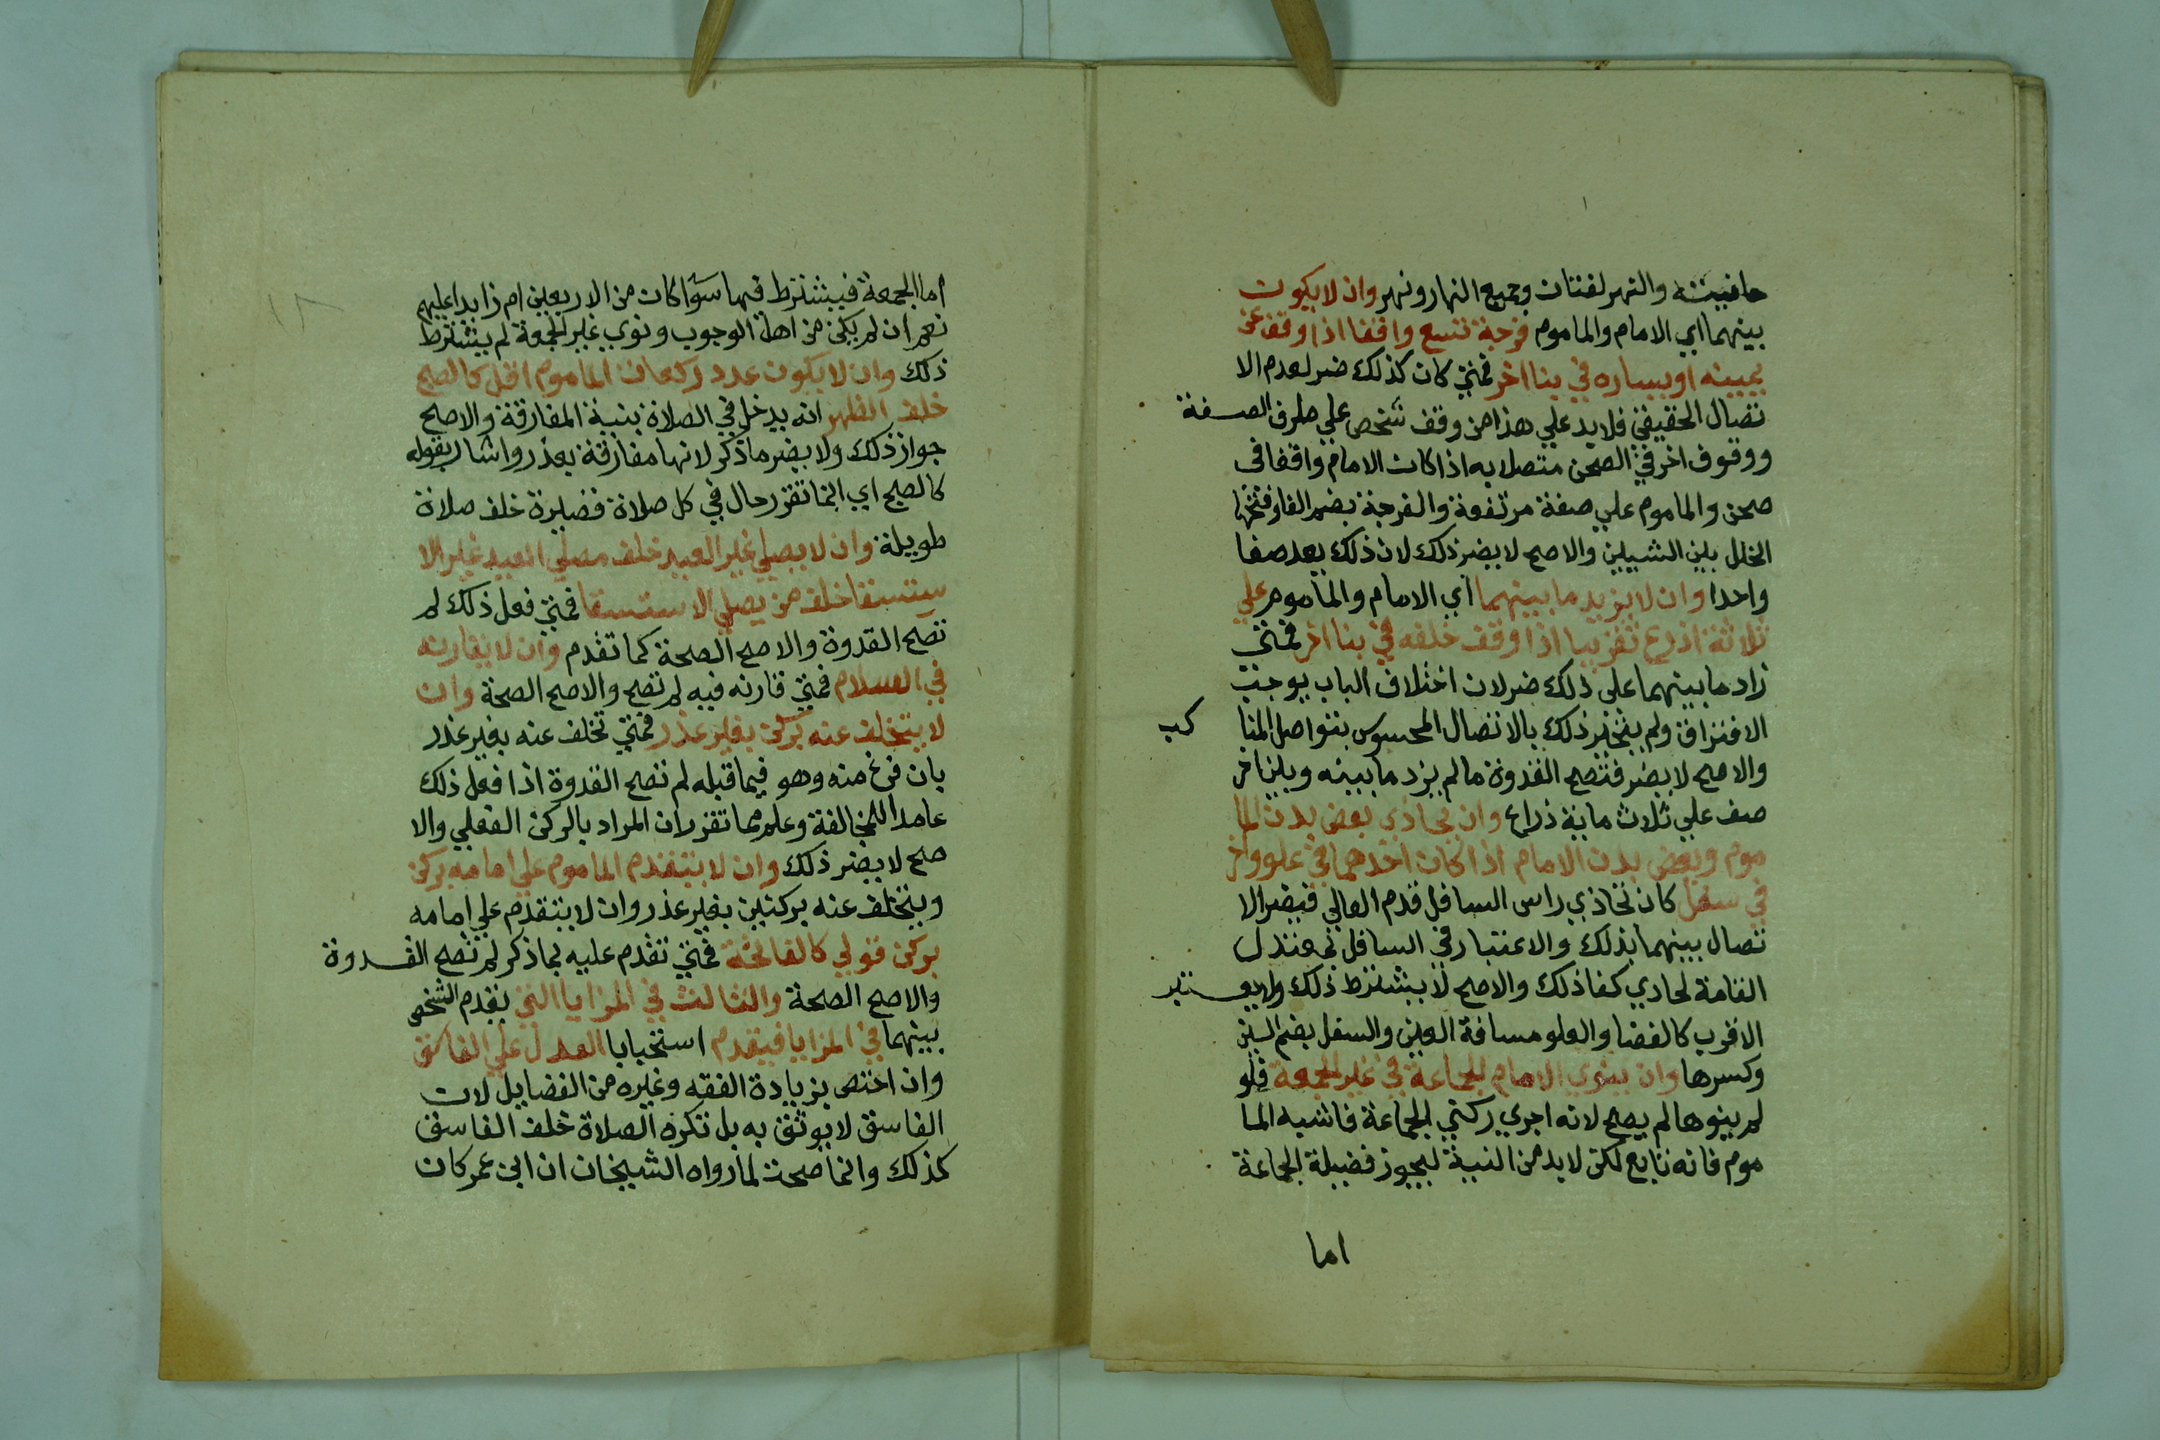 حافيته والنهر لغتان وجمع النهار ونهر وان لا يكون
بينهما اي الامام والماموم فرجة تسع واقفا اذا وقف عن
يمينه او يساره في بنا اخر فمتي كان كذلك ضر لعدم الا
تصال الحقيقي فلا بد علي هذا من وقف شخص علي طرف الصفة
ووقوف اخر في الصحن متصلا به اذا كان الامام واقفا في
صحن والماموم علي صفة مرتفعة والفرجة بضم الفا وفتحها
الخلل بين الشيين والاصح لا يضر ذلك لان ذلك يعد صفا
واحدا وان لا يزيد ما بينهما اي الامام والماموم علي
ثلاثة اذرع تقريبا اذا وقف خلفه في بنا اخر فمتي
زاد ما بينهما علي ذلك ضر لان اختلاف الباب يوجب
الافتراق ولم ينجبر ذلك بالاتصال المحسوس بتواصل المنا
كب
والاصح لا يضر فتصح القدوة ما لم يزد ما بينه وبين اخر
صف علي ثلاث ماية ذراع وان يحاذي بعض بدن الما
موم وبعض بدن الامام اذا كان احدهما في علو واخر
في سفل كان تحاذي راس السافل قدم العالي فيضر الا
تصال بينهما بذلك والاعتبار في السافل بمعتدل
القامة لحادي كفا ذلك والاصح لا يشترط ذلك ولا يعتبر
الاقرب كالفضا والعلو مسافة العين والسفل بضم السين
وكسرها وان ينوي الامام الجماعة في غير الجمعة فلو
لم ينوها لم يصح لانه اجري ركني الجماعة فاشبه الما
موم فانه تابع لكن لا بد من النية ليحوز فضيلة الجماعة
اما
١٨
اما الجمعة فيشترط فيها سوآ كان من الاربعين ام زايدا عليهم
نعم ان لم يكن من اهل الوجوب ونوي غير الجمعة لم يشترط
ذلك وان لا يكون عدد ركعات الماموم اقل كالصبح
خلف الظهر انه يدخل في الصلاة بنية المفارقة والاصح
جواز ذلك ولا يضر ما ذكر لانها مفارقة بعذر واشار بقوله
كالصبح اي انما تقرر حال في كل صلاة قصيرة خلف صلاة
طويلة وان لا يصلي غير العيد خلف مصلي العيد غير الا
ستسقا خلف من يصلي الاستسقا فمتي فعل ذلك لم
تصح القدوة والاصح الصحة كما تقدم وان لا يقارنه
في السلام فمتي قارنه فيه لم تصح والاصح الصحة وان
لا يتخلف عنه بركن بغير عذر فمتي تخلف عنه بغير عذر
بان فرغ منه وهو فيما قبله لم تصح القدوة اذا فعل ذلك
عامدا للمخالفة وعلم مما تقرر ان المراد بالركن الفعلي والا
صح لا يضر ذلك وان لا يتقدم الماموم علي امامه بركن
ويتخلف عنه بركنين بغير عذر وان لا يتقدم علي امامه
بركن قولي كالفاتحة فمتي تقدم عليه بما ذكر لم تصح القدوة
والاصح الصحة والثالث في المزايا التي يقدم الشخص
بينهما في المزايا فيقدم استحبابا العدل علي الفاسق
وان اختص بزيادة الفقه وغيره من الفضايل لان
الفاسق لا يوثق به بل تكره الصلاة خلف الفاسق
كذلك وانما صحت لما رواه الشيخان ان ابن عمر كان